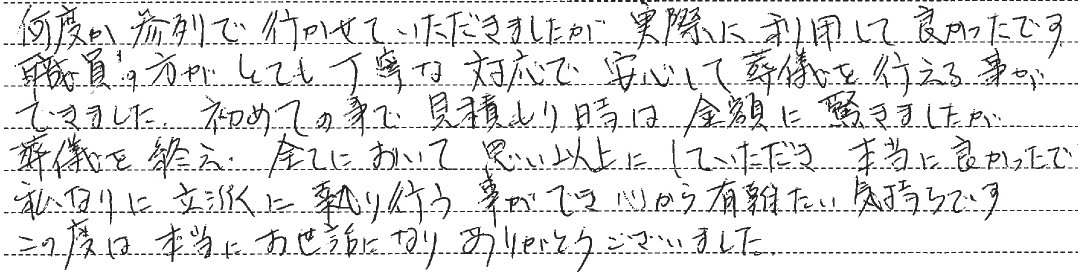 何度か参列で行かせていただきましたが実際に利用して良かったです
職員の方がとても丁寧な対応で安心して葬儀を行える事が
できました。初めての事で見積もり時は金額に驚きましたが
葬儀を終え、全てにおいて思い以上にしていただき本当に良かったで
私なりに立派に執り行う事ができ心から有難たい気持ちです
この度は本当にお世話になりありがとうございました。